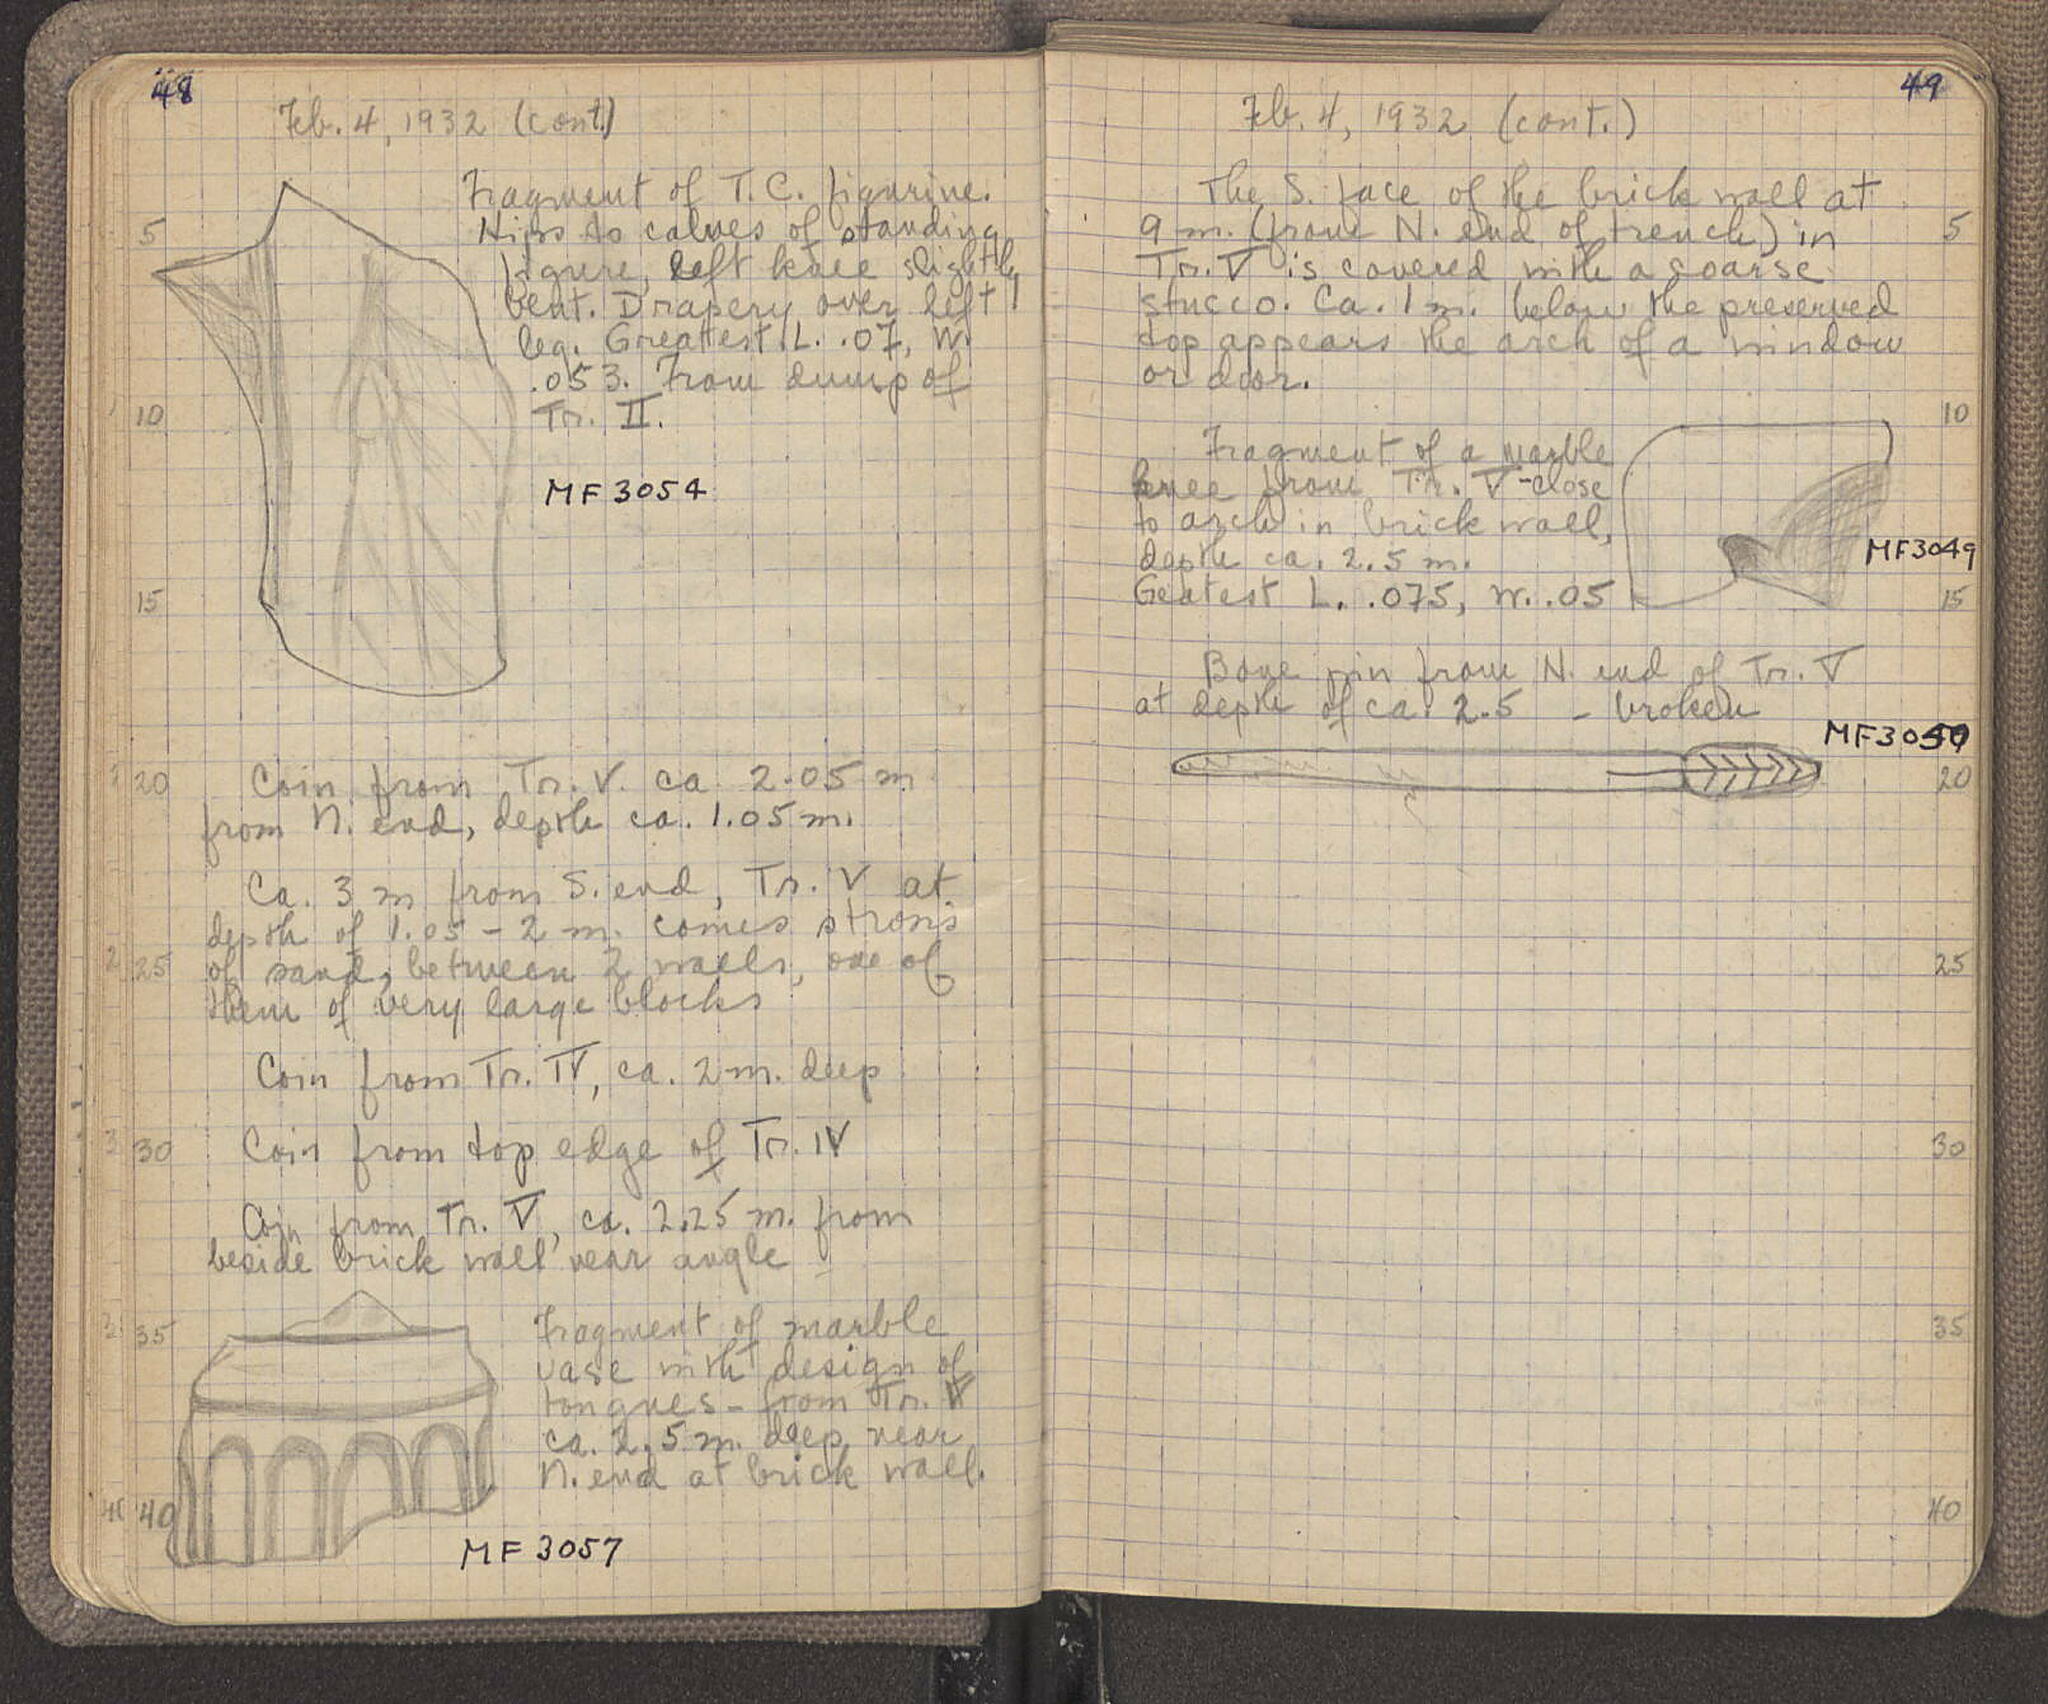 48
Feb. 4, 1932 (cont.)
Fragment of T.C. figurine.
Hips to calves of standing
figure, left knee slightly
bent. Drapery over left
leg. Greatest L. .07, W.
.053. From dump of
Tr. II.
MF 3054
5
10
15
20
25
30
35
40
Coin from Tr. V. ca. 2.05 m
from N. end, depth ca. 1.05 m.
Ca. 3 m from S. end, Tr. V at
depth of 1.05 - 2 m. comes
of sand, between 2 walls, one of
them of very large blocks
Coin from Tr. IV, ca. 2 m. deep
Coin from top edge of Tr. IV
Coin from Tr. V, ca. 2.25 m. from
beside brick wall near angle
Fragment of marble
vase with design of
tongues - from Tr.
ca. 2.5 m. deep near
N. end at brick wall.
MF 3057
49
Feb. 4, 1932 (cont.)
The S. face of the brick wall at
9 m. (from N. end of trench) in
Tr. V is covered with a coarse
stucco. Ca. 1 m. below the preserved
top appears the arch of a window
or door.
Fragment of a marble
knee from Tr. V - close
to arch in brick wall,
depth ca. 2.5 m.
Geatest L. .075, W. .05
MF3049
Bone pin from N. end of Tr. V
at depth of ca. 2.5 - broken
5
10
15
20
25
30
35
40